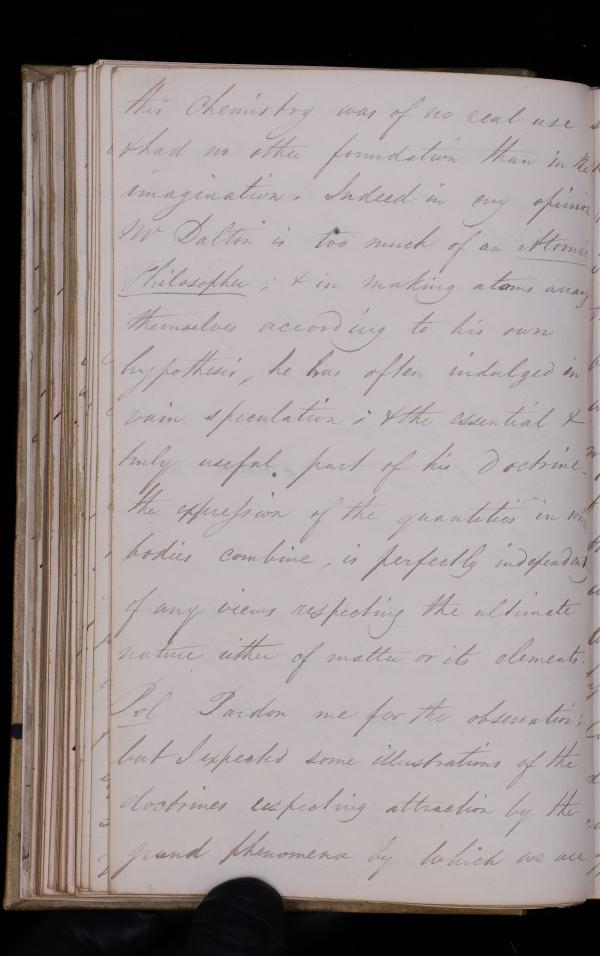 this Chemistry was of no real use
& had no other foundation than in the
imagination. Indeed in my opinion
Mr Dalton is too much of an Atomic
Philosopher; & in making atoms arrang
themselves according to his own
hypothesis, he has often indulged in
vain speculation; & the essential &
truly useful part of his doctrine
the expression of the quantities in
bodies combine, is perfectly independent
of any views respecting the ultimate
nature either of matter or its elements.
Pol Pardon me for the observation;
but I expected some illustrations of the
doctrines respecting attraction by the
grand phenomena by which we are